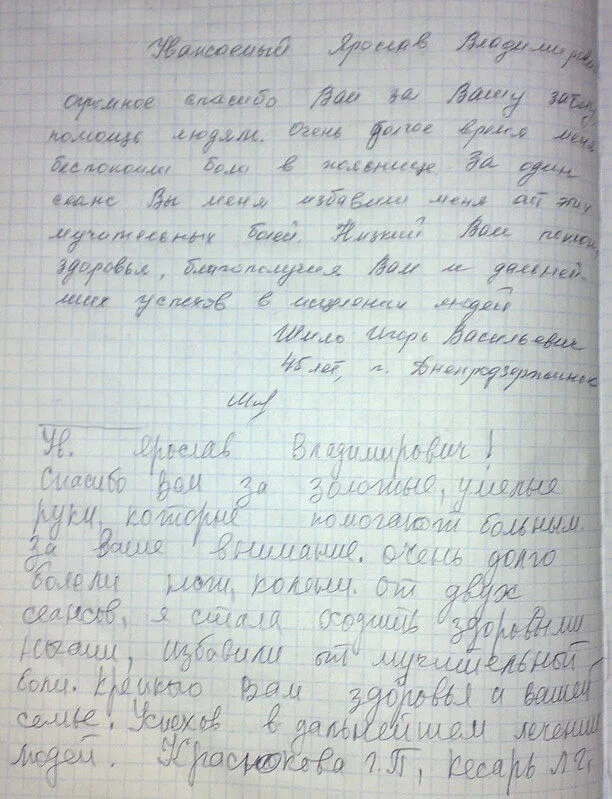 Уважаемый Ярослав Владимирович
огромное спасибо Вам за Вашу
помощь людям. Очень долгое время меня
беспокоили боли в пояснице. За один
сеанс Вы меня избавили меня от этих
мучительных болей. Низкий Вам поклон,
здоровья, благополучия Вам и дальней-
ших успехов в исцелении людей
Шило Игорь Васильевич
45 лет, г. Днепродзержинск
Ув. Ярослав Владимирович!
Спасибо Вам за золотые, умелые
руки, которые помогают больным.
За ваше внимание. очень долго
болели ноги, колени. от двух
сеансов, я стала ходить здоровыми
ногами, избавили от мучительной
боли. Крепкого Вам здоровья и вашей
семье. Успехов в дальнейшем лечении
людей. Краснокова Г.П, Кесарь Л.Г,